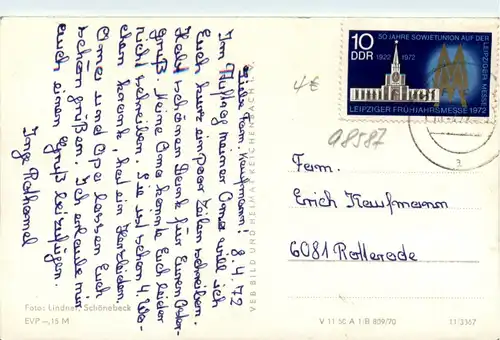 Liebe Fam. Kaufmann! 8.4.72
Im Auftrag meiner Oma will ich
Euch kurz ein paar Zeilen schreiben.
Habt schönen Dank für Euren Oster-
gruß. Meine Oma konnte Euch leider
nicht schreiben. Sie ist schon 4 Wo-
chen krank, hat ein Herzleiden.
Oma und Opa lassen Euch
schön grüßen. Ich erlaube mir
auch einen Gruß beizufügen.
Inge Rothamel
VEB BILD UND HEIMAT REICHENBACH I. V.
Foto: Lindner, Schönebeck
EVP -,15 M
4€
10
DDR
1922 1972
50 JAHRE SOWJETUNION AUF DER
LEIPZIGER MESSE
LEIPZIGER FRÜHJAHRSMESSE 1972
a
A8587
Fam.
Erich Kaufmann
6081 Rotterode
V 11 50 A 1/B 809/70